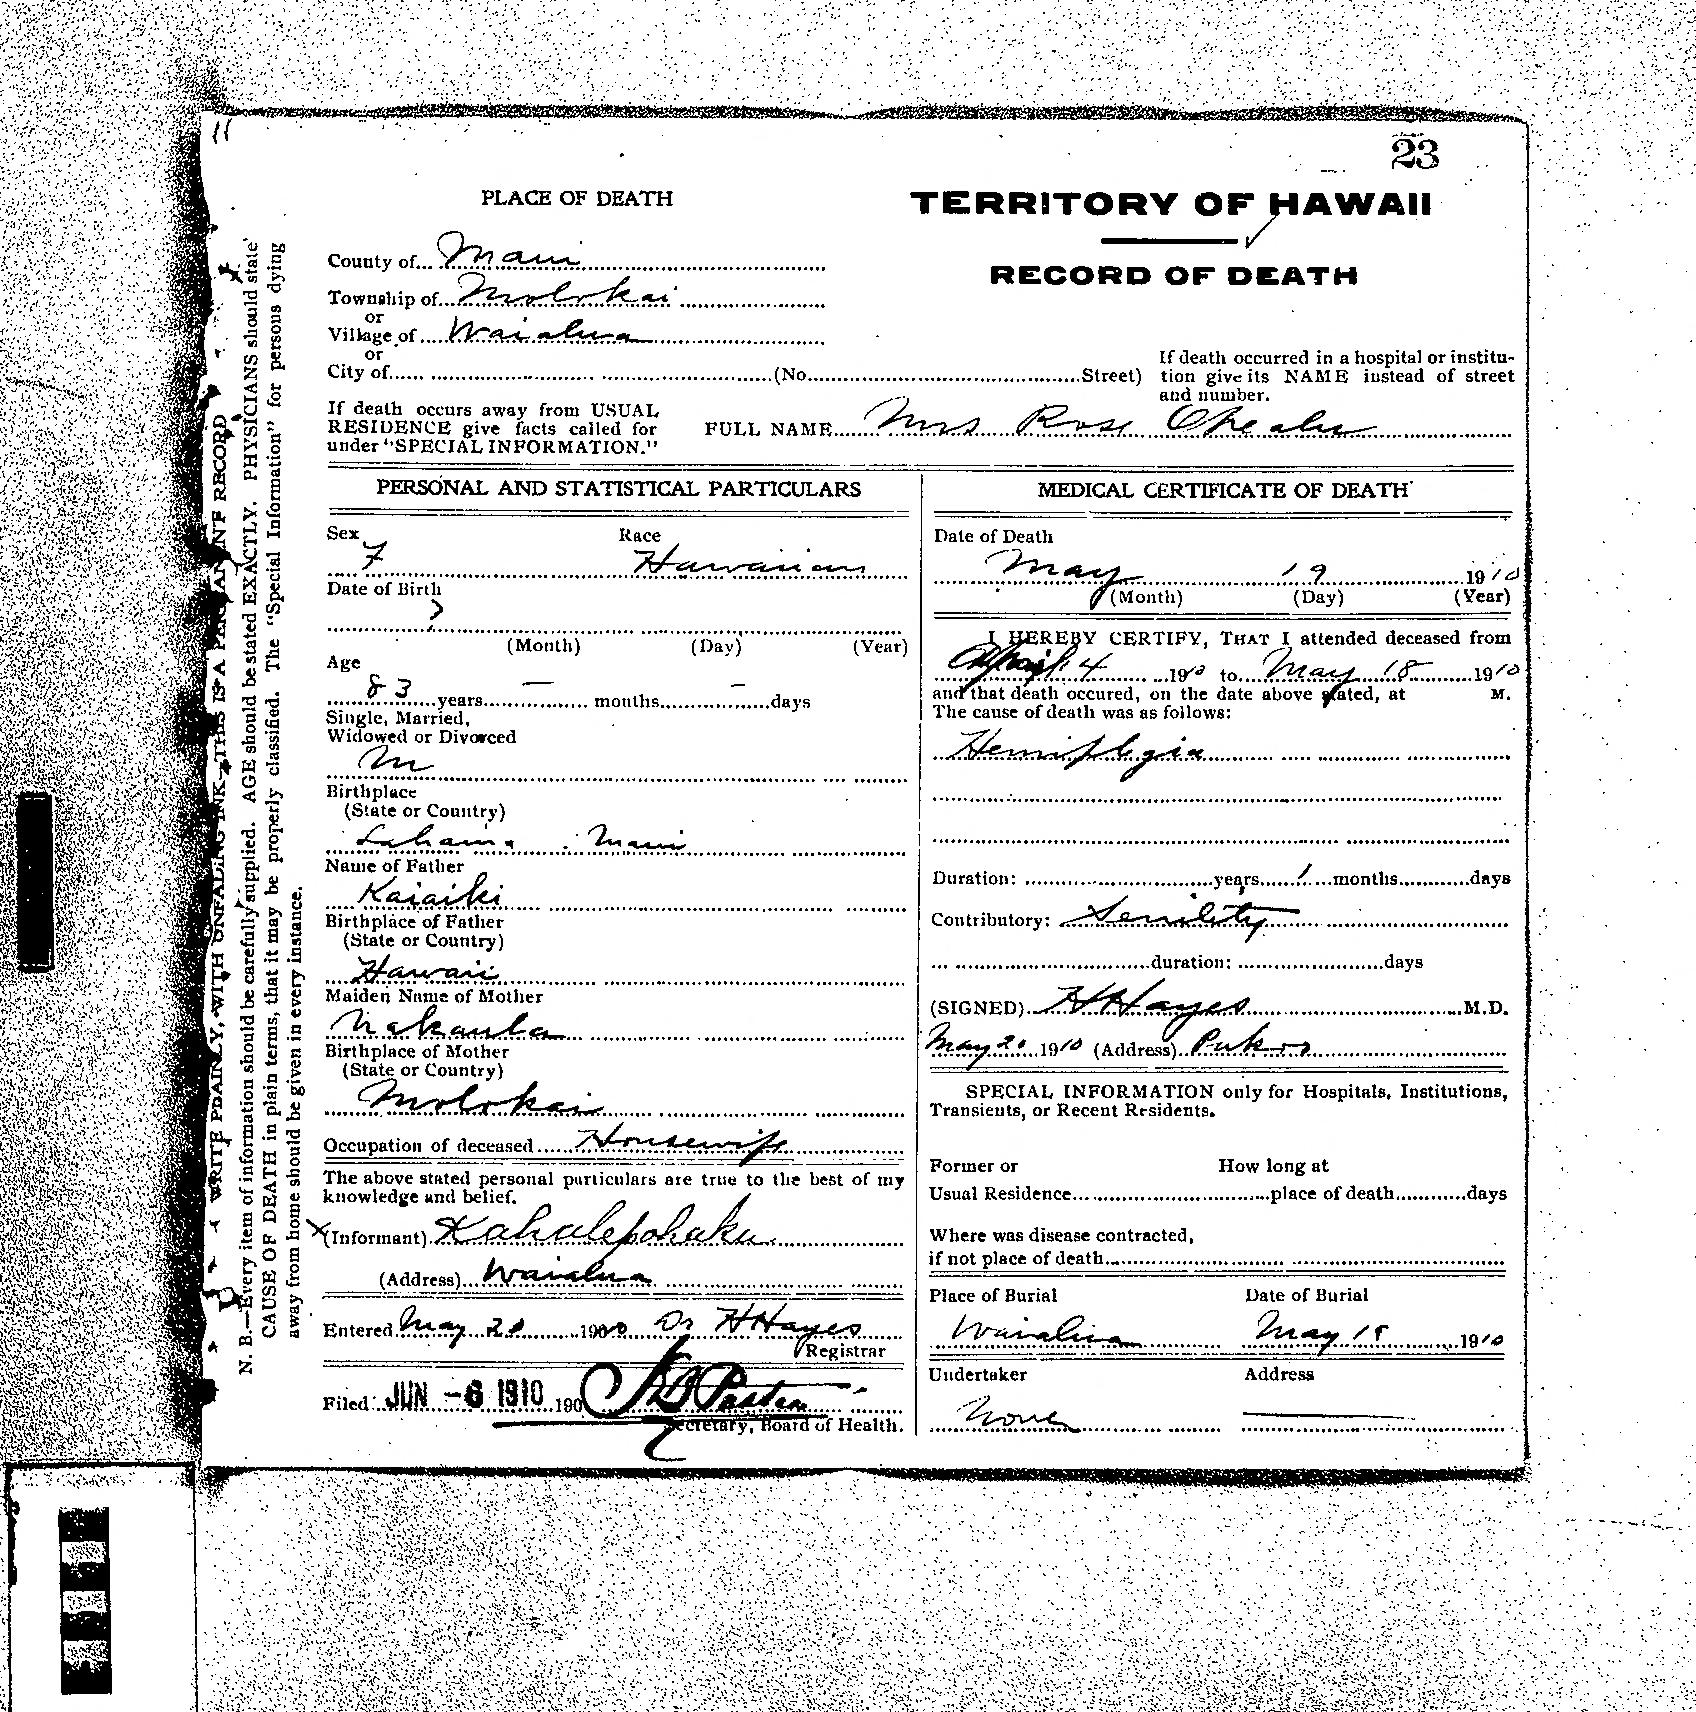 11
23
PLACE OF DEATH
TERRITORY OF HAWAII
RECORD OF DEATH
County of Maui
Township of Molokai
or
Village of Waialua
or
City of (No. Street)
If death occurred in a hospital or institution give its NAME instead of street
and number.
If death occurs away from USUAL
RESIDENCE give facts called for
under "SPECIAL INFORMATION."
FULL NAME Mrs Rose
WRITE PLAINLY, WITH UNFADING INK—THIS IS A PERMANENT RECORD
N. B.—Every item of information should be carefully supplied. AGE should be stated EXACTLY. PHYSICIANS should state
CAUSE OF DEATH in plain terms, that it may be properly classified. The "Special Information" for persons dying
away from home should be given in every instance.
PERSONAL AND STATISTICAL PARTICULARS
Sex Race
F Hawaiian
Date of Birth
?
(Month) (Day) (Year)
Age
83 years — months — days
Single, Married,
Widowed or Divorced
M
Birthplace
(State or Country)
Lahaina Maui
Name of Father
Kaiaiki
Birthplace of Father
(State or Country)
Hawaii
Maiden Name of Mother
Nakaula
Birthplace of Mother
(State or Country)
Molokai
Occupation of deceased Housewife
The above stated personal particulars are true to the best of my
knowledge and belief.
X (Informant) Kahalepohaku
(Address) Waialua
Entered May 20 1910 Dr H Hayes
Registrar
Filed JUN -6 1910 190
Secretary, Board of Health.
MEDICAL CERTIFICATE OF DEATH
Date of Death
May 19 1910
(Month) (Day) (Year)
I HEREBY CERTIFY, THAT I attended deceased from
April 4 1910 to May 18 1910
and that death occured, on the date above stated, at M.
The cause of death was as follows:
Hemiplegia
Duration: years 1 months days
Contributory: Senility
duration: days
(SIGNED) H Hayes M.D.
May 20 1910 (Address) Pukoo
SPECIAL INFORMATION only for Hospitals, Institutions,
Transients, or Recent Residents.
Former or How long at
Usual Residence place of death days
Where was disease contracted,
if not place of death
Place of Burial Date of Burial
Waialua May 18 1910
Undertaker Address
None —